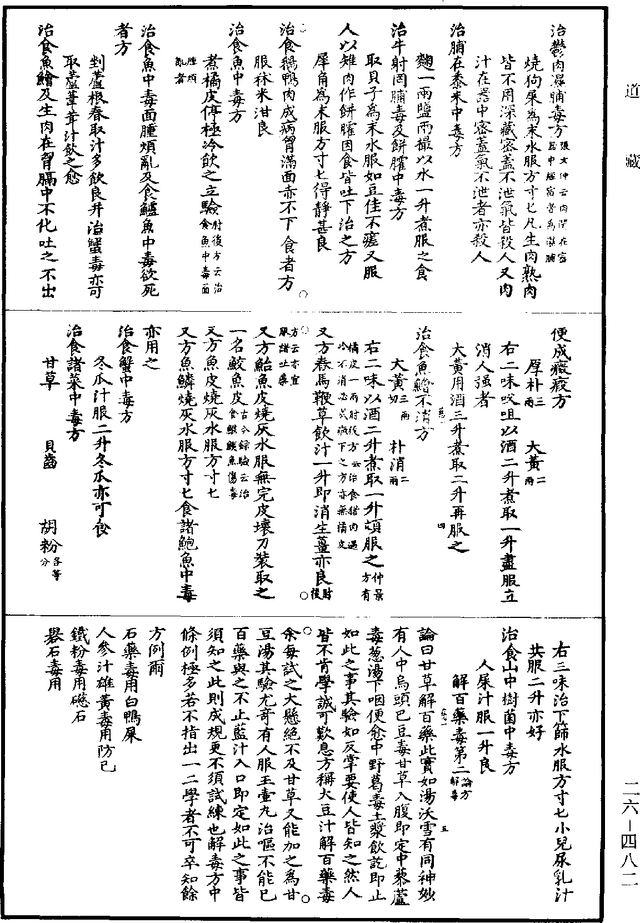 道藏
治鬱肉濕脯毒方張文仲云肉閉在密器中經宿者為鬱脯
燒狗屎為末水服方寸匕凡生肉熟肉
皆不用深藏密蓋不泄氣皆殺人又肉
汁在器中密蓋氣不泄者亦殺人
治脯在黍米中毒方
麴一兩鹽兩撮以水一升煮服之食
治牛射罔脯毒及餅臛中毒方
取貝子為末水服如豆佳不瘥又服
人以雉肉作餅臛因食皆吐下治之方
犀角為末服方寸匕得靜甚良
治食鵝鴨肉成病胷滿面赤不下食者方
服秫米泔良
治食魚中毒方
煮橘皮停極冷飲之立驗肘後方云治食魚中毒面腫煩亂者
治食魚中毒面腫煩亂及食鱸魚中毒欲死
者方
剉蘆根舂取汁多飲良并治蟹毒亦可
取蘆葦茸汁飲之愈
治食魚鱠及生肉在胷膈中不化吐之不出
便成癥瘕方
厚朴三兩 大黃二兩
右二味㕮咀以酒二升煮取一升盡服立
消人強者
大黃用酒三升煮取二升再服之
治食魚鱠不消方
大黃三兩切 朴消二兩
右二味以酒二升煮取一升頓服之仲景方有
橘皮一兩肘後方云治食猪肉遇冷不消必成癥下之方亦無橘皮
又方舂馬鞭草飲汁一升即消生薑亦良肘後
方云亦宜服諸吐藥
又方鮐魚皮燒灰水服無完皮壞刀裝取之
一名鮫魚皮古今錄驗云治食鯸鮧魚傷毒
又方魚皮燒灰水服方寸匕
又方魚鱗燒灰水服方寸匕食諸鮑魚中毒
亦用之
治食蟹中毒方
冬瓜汁服二升冬瓜亦可食
治食諸菜中毒方
甘草 貝齒 胡粉各等分
右三味治下篩水服方寸匕小兒尿乳汁
共服二升亦好
治食山中樹菌中毒方
人屎汁服一升良
解百藥毒第二論方解毒
論曰甘草解百藥此實如湯沃雪有同神妙
有人中烏頭巴豆毒甘草入腹即定中藜蘆
毒葱湯下咽便愈中野葛毒土漿飲訖即止
如此之事其驗如反掌要使人皆知之然人
皆不肯學誠可歎息方稱大豆汁解百藥毒
余每試之大懸絕不及甘草又能加之為甘
豆湯其驗尤奇有人服玉壺丸治嘔不能已
百藥與之不止藍汁入口即定如此之事皆
須知之此則成規更不須試練也解毒方中
條例極多若不指出一二學者不可卒知餘
方例爾
石藥毒用白鴨屎
人參汁雄黃毒用防已
鐵粉毒用磁石
礜石毒用
二六－四八二